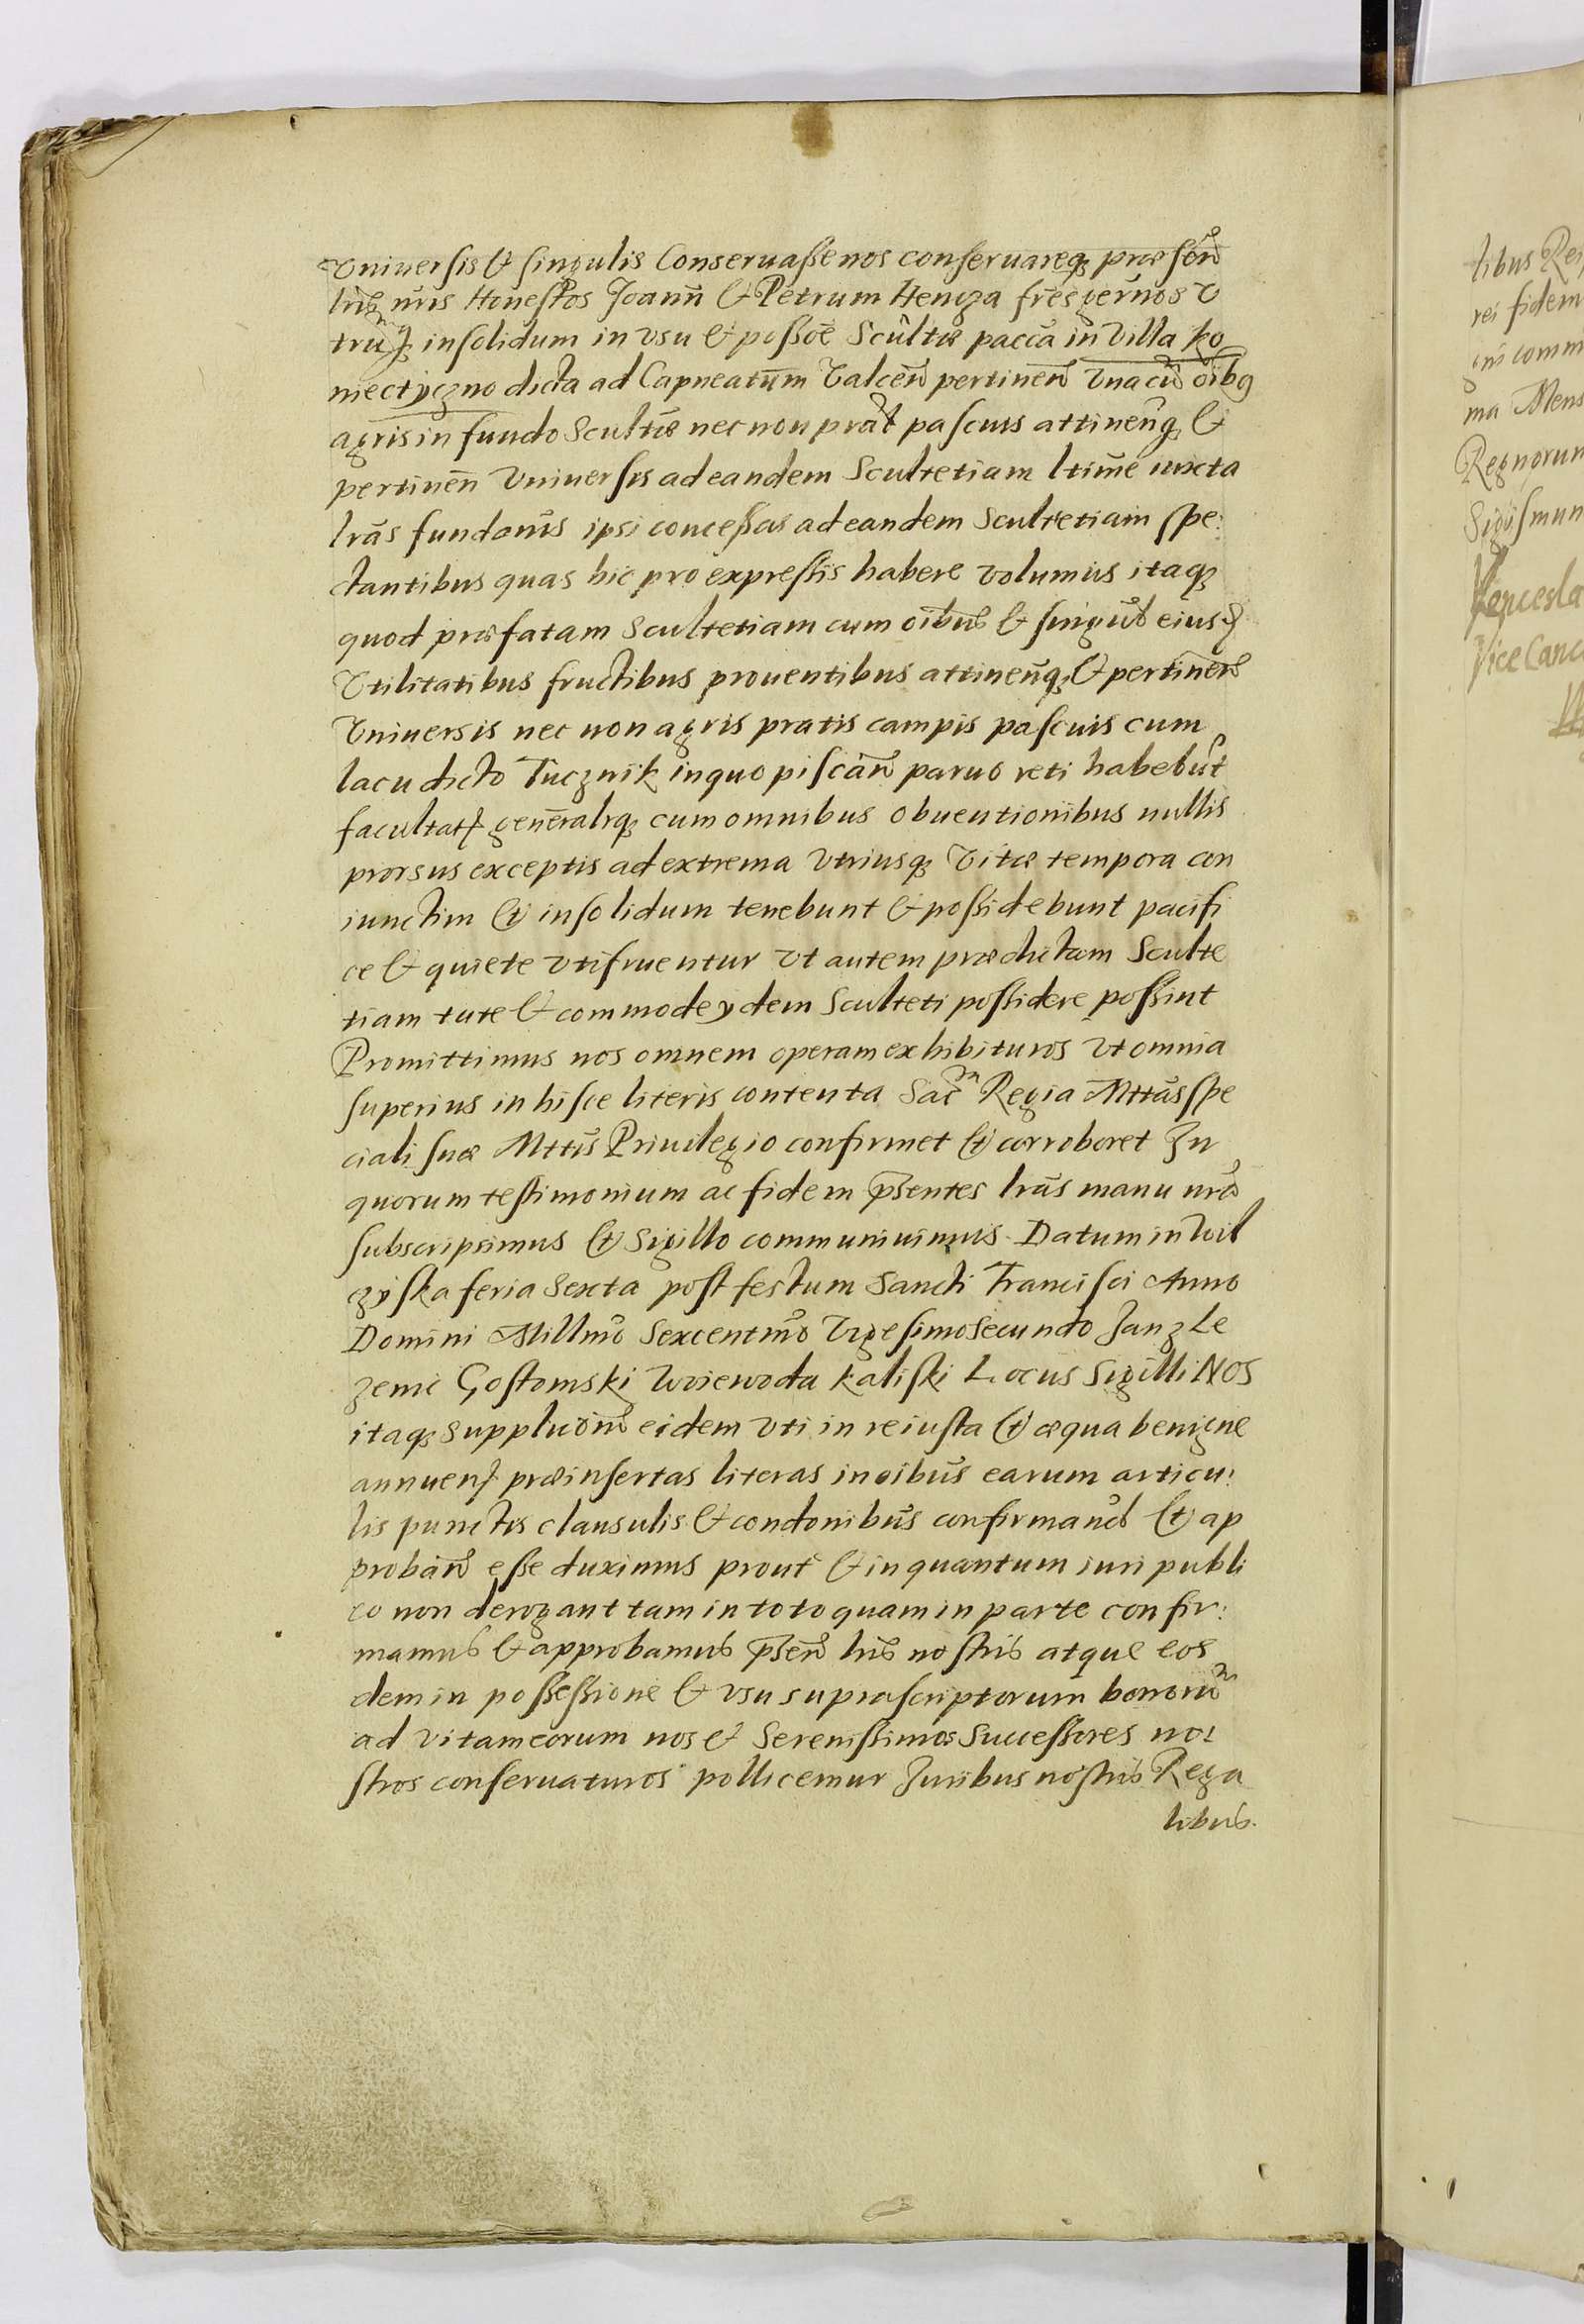 Vniuersis & singulis Conseruasse nos conseruareq; præsen̄
lris nr̄is Honestos Joann̄ & Petrum Hengza fr̄es ger̄nos V
trūq; insolidum in vsu & possoe Scultæ pacca in Villa ko
niectyczno dicta ad Capneatum Valcen̄ pertinen̄ Vnacū oib9
agris in fundo Scultiæ nec non prat pascuis attinen̄q; &
pertinen̄ Vniuersis ad eandem Scultetiam ltime iuxta
lrās fundonis ipsi concessas ad eandem Scultetiam spe:
ctantibus quas hic pro expressis habere volumus itaq;
quod præfatam Scultetiam cum oibus & singul eiusd
Vtilitatibus fructibus prouentibus attinen̄q; & pertinen̄
Vniuersis nec non agris pratis campis pascuis cum
lacu dicto Tucznik in quo piscan̄ paruo reti habebūt
facultat generaliq; cum omnibus obuentionibus nullis
prorsus exceptis ad extrema vtriusq; Vitæ tempora con
iunctim & insolidum tenebunt & possidebunt pacifi
ce & quiete vtifruentur vt autem prædictam Sculte
tiam tute & commode ydem Sculteti possidere possint
Promittimus nos omnem operam exhibituros Vt omnia
superius in hisce literis contenta Sacr̄ Regia Mttās spe
ciali suæ Mttis Priuilegio confirmet & corroboret In
quorum testimonium ac fidem p̄sentes lrās manu nrā
subscripsimus & Sigillo communiuimus. Datum in Wil
czyska feria Sexta post festum Sancti Francisci Anno
Domini Millmo Sexcentmo Vigesimosecundo Janz Le
zenic Gostomski Woiewoda Kaliski Locus Sigilli NOS
itaq; Supplicōni eidem vti in re iusta & æqua benigne
annuen præinsertas literas in oibus earum articu:
lis punctis clausulis & condonibus confirmand & ap
proban̄ esse duximus prout & in quantum iuri publi
co non derogant tam in toto quam in parte confir:
mamus & approbamus p̄sen̄ lris nostris atque eos
dem in possessione & vsu suprascriptorum bonorū
ad vitam eorum nos & Serenissimos Successores nos
stros conseruaturos pollicemur Juribus nostris Rega
libus.
libus Rei
rei fidem
gni comm
ma Mens
Regnorum
Sigismun
Venceslā
Vice Canc